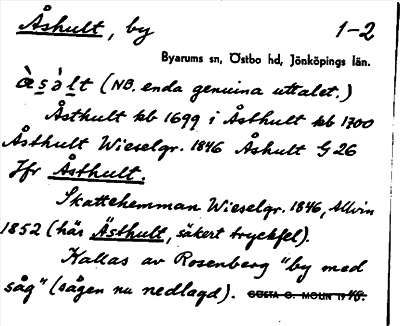 Åshult, by 1-2
Byarums sn, Östbo hd, Jönköpings län.
à̀s̥à̀lt (NB. enda genuina uttalet.)
Åsthult kb 1699 i Åsthult kb 1700
Åsthult Wieselgr. 1846 Åshult G 26
Jfr Åsthult.
Skattehemman Wieselgr. 1846, Allvin
1852 (här Ästhult, säkert tryckfel).
Kallas av Rosenberg "by med
såg" (sågen nu nedlagd). GÖSTA G. MOLIN 1948.